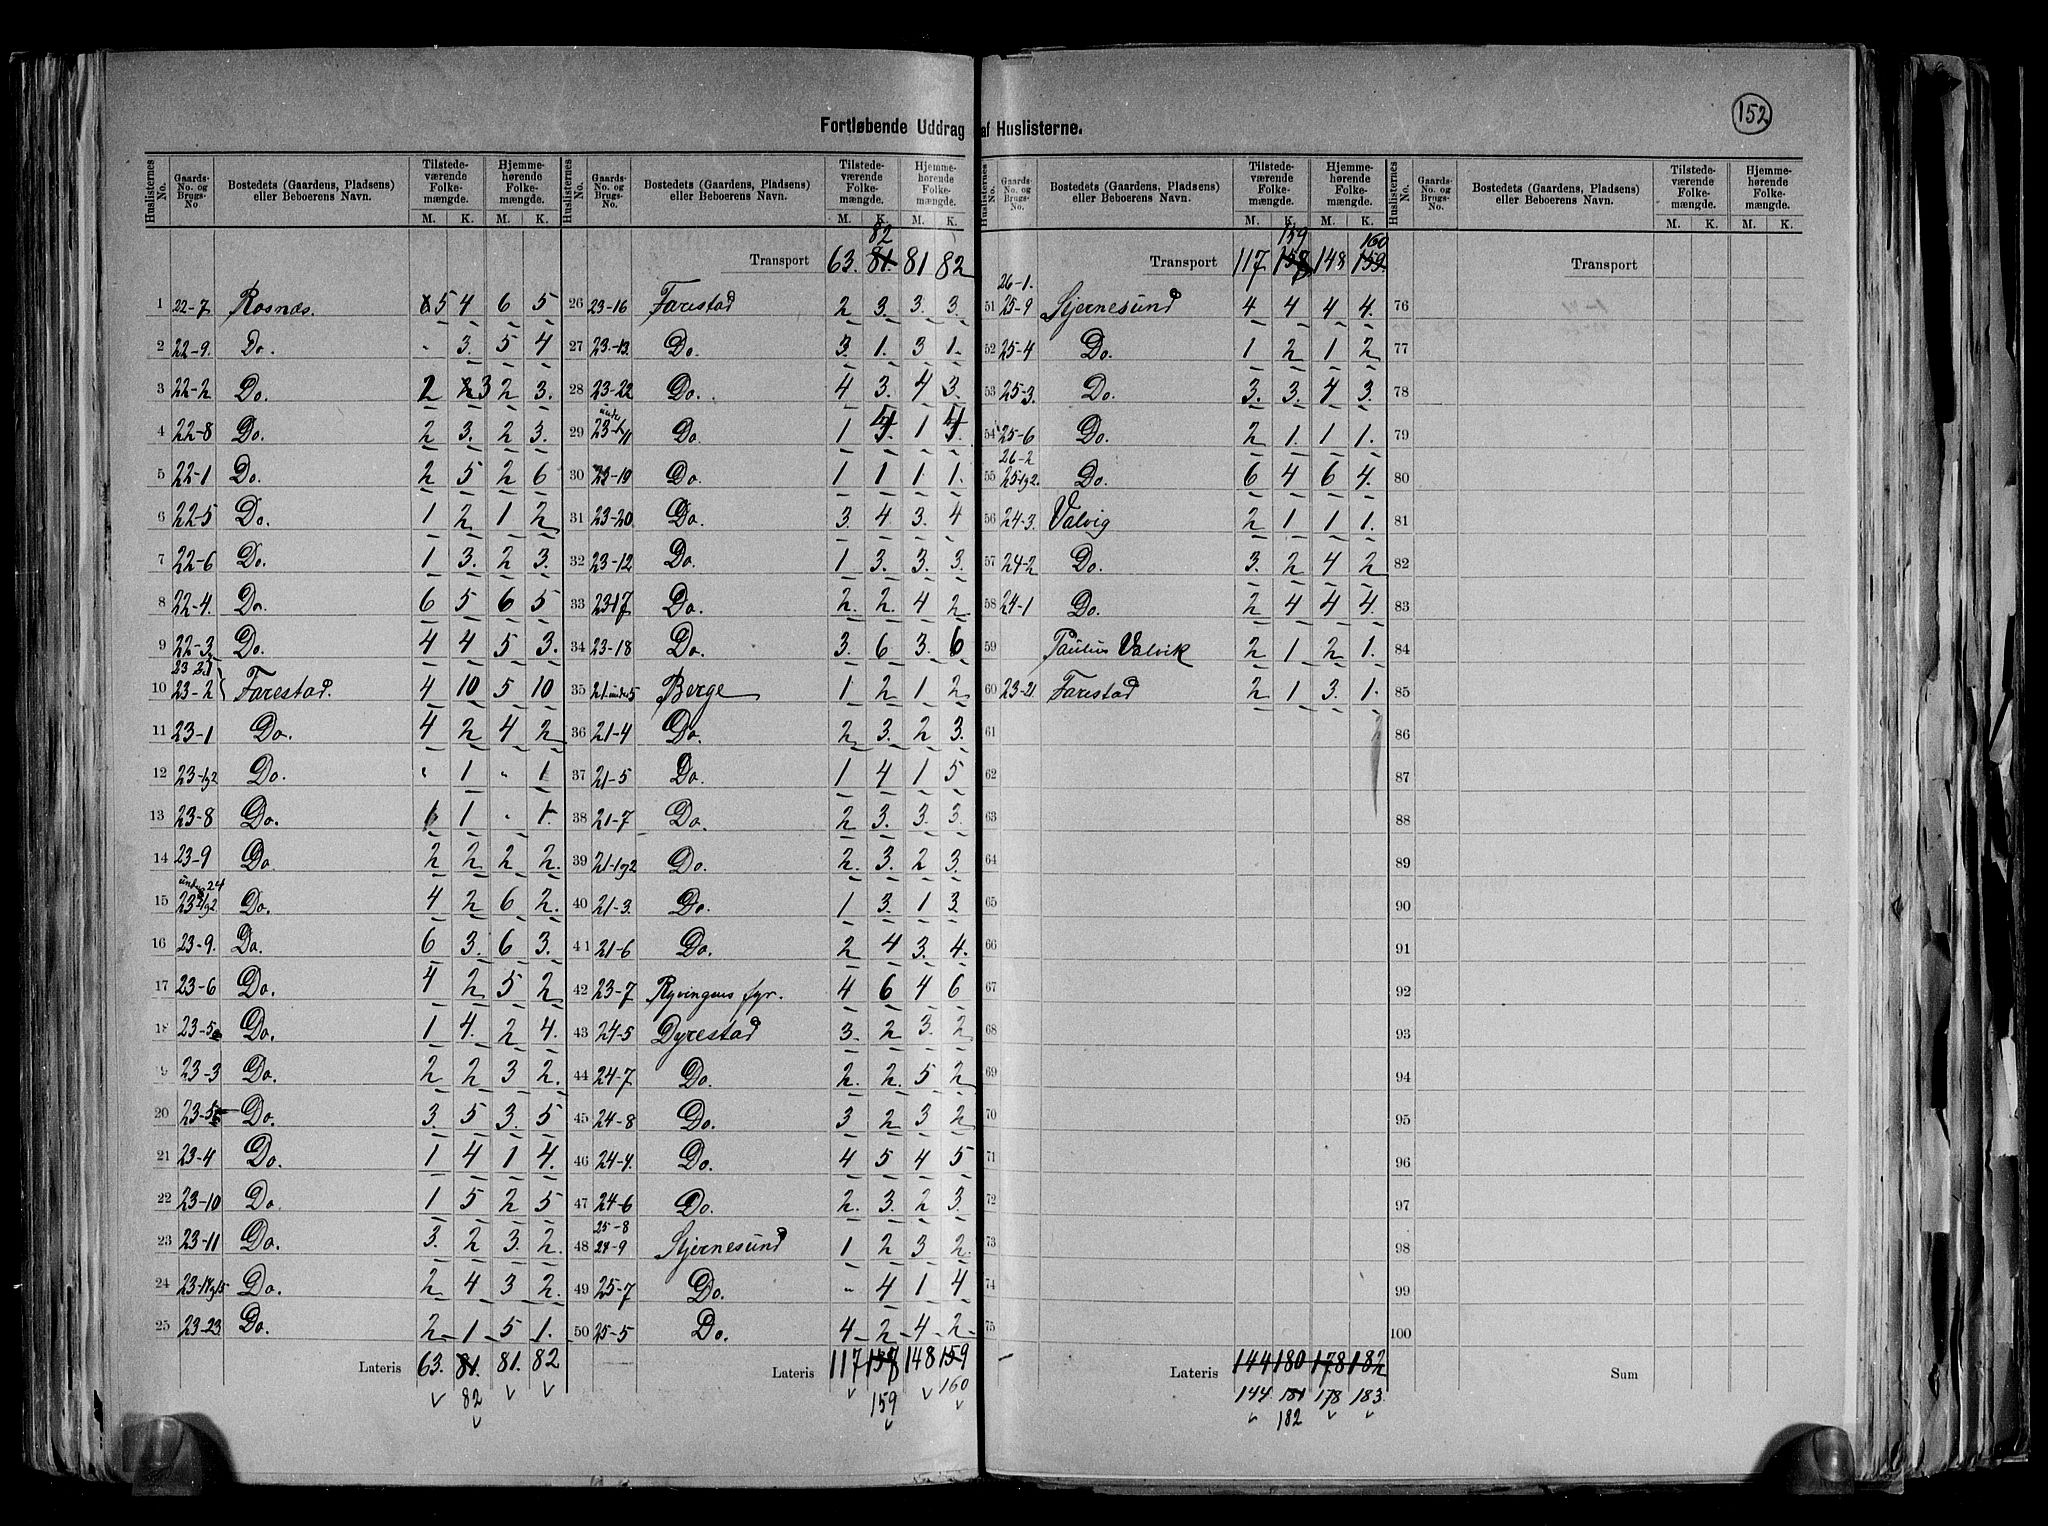 152
Fortløbende Uddrag af Huslisterne.
Huslisternes No. | Gaards-No. og Brugs-No | Bostedets (Gaardens, Pladsens) eller Beboerens Navn. | Tilstedeværende Folkemængde. M. K. | Hjemmehørende Folkemængde. M. K.
1 22-7 Rosnæs. 5 4 6 5
2 22-9. Do. " 3. 5 4
3 22-2 Do. 2 3 2 3.
4 22-8 Do. 2 3. 2 3.
5 22-1 Do. 2 5 2 6
6 22-5 Do. 1 2 1 2
7 22-6 Do. 1 3. 2 3.
8 22-4. Do. 6 5 6 5
9 22-3 Do. 4 4 5 3.
10 23-2 Farestad. 4 10 5 10
11 23-1 Do. 4 2 4 2
12 23-1g2 Do. " 1 " 1
13 23-8 Do. 1 " 1.
14 23-9 Do. 2 2 2 2.
15 under 24 23-1g2 Do. 4 2 6 2.
16 23-9. Do. 6 3. 6 3.
17 23-6 Do. 4 2 5 2
18 23-5a Do. 1 4. 2 4.
19 23-3 Do. 2 2 3 2.
20 23-5 Do. 3. 5 3. 5
21 23-4 Do. 1 4 1 4.
22 23-10 Do. 1 5 2 5
23 23-11 Do. 3. 2 3. 2.
24 Do. 2 4 3 2.
25 23-23. Do. 2 1 5 1.
Lateris 63. 81. 81. 82
82
82
Transport 63. 81. 81 82
26 23-16 Farestad 2 3. 3. 3.
27 23-13. Do. 3. 1. 3 1.
28 23-22 Do. 4 3. 4 3.
29 under 23-11 Do. 1 4 1 4
30 23-19 Do. 1 1 1 1.
31 23-20. Do. 3. 4 3. 4
32 23-12 Do. 1 3. 3. 3.
33 23-17 Do. 2. 2. 4 2.
34 23-18 Do. 3. 6 3. 6
35 21 under 5 Berge 1 2 1 2
36 21-4 Do. 2 3. 2 3.
37 21-5 Do. 1 4 1 5
38 21-7 Do. 2 3. 3. 3.
39 21-1g2 Do. 2. 3. 2 3.
40 21-3. Do. 1 3. 1 3
41 21-6 Do. 2 4 3. 4.
42 23-7 Ryvingens fyr. 4 6 4 6
43 24-5 Dyrestad 3. 2 3. 2
44 24-7 Do. 2. 2. 5 2
45 24-8 Do. 3 2 3 2
46 24-4. Do. 4 5 4 5
47 24-6 Do. 2. 3. 2 3.
48 25-8 Stjernesund 1 2 3 2.
49 25-7 Do. " 4 1 4
50 25-5 Do. 4 2 4 2
Lateris 117 158 148 159
159 160
159 160
Transport 117 158 148 159.
51 26-1. 25-9 Stjernesund 4 4 4 4.
52 25-4 Do. 1 2 1 2
53 25-3. Do. 3. 3. 4 3.
54 25-6 Do. 2 1. 1 1.
55 26-2 25-1g2. Do. 6 4 6 4.
56 24-3. Valvig 2 1 1 1.
57 24-2 Do. 3. 2 4 2
58 24-1 Do. 2 4 4 4.
59 Paulus Valvik 2 1 2 1.
60 23-21. Farestad 2 1 3 1.
61
62
63
64
65
66
67
68
69
70
71
72
73
74
75
Lateris 144 180 178 182
144. 181 178 183.
182
Transport
76
77
78
79
80
81
82
83
84
85
86
87
88
89
90
91
92
93
94
95
96
97
98
99
100
Sum